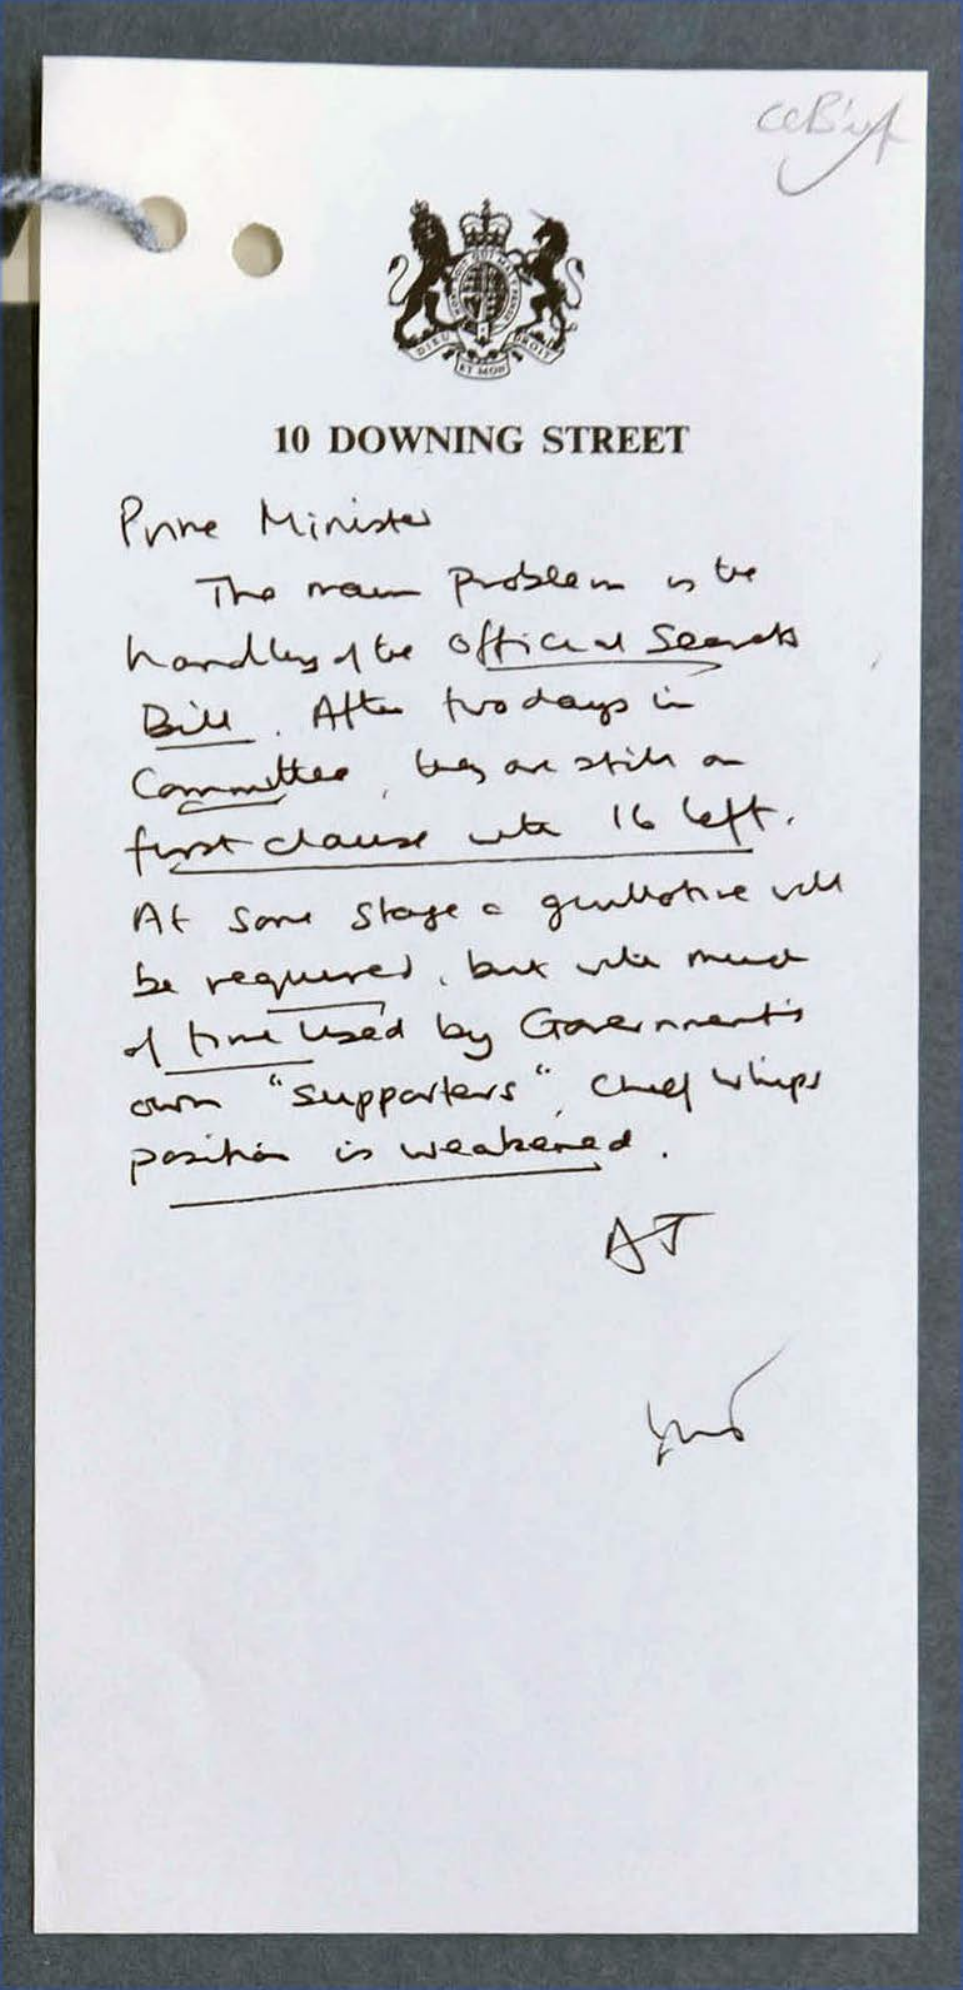 DIEU ET MON DROIT
10 DOWNING STREET
Prime Minister
The main problem is the
handling of the Official Secrets
Bill. After two days in
Committee, they are still on
first clause with 16 left.
At some stage a guillotine will
be required, but with much
of time used by Government's
own "supporters", Chief Whips
position is weakened.
AT